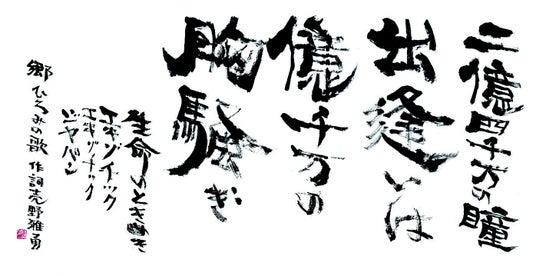 二億四千万の瞳
出逢いは
億千万の
胸騒ぎ
生命のときめき
エキゾチック
エキゾチック
ジャパン
郷ひろみの歌 作詞売野雅勇